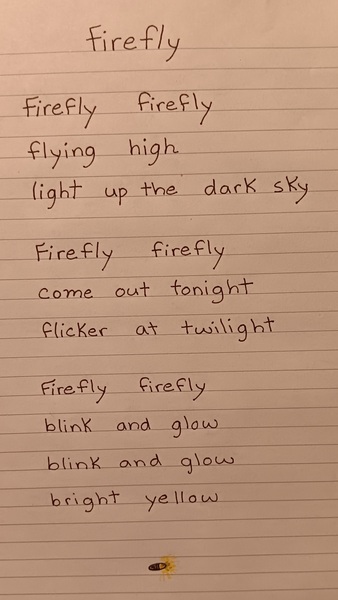 Firefly
Firefly firefly
flying high
light up the dark sky
Firefly firefly
come out tonight
flicker at twilight
Firefly firefly
blink and glow
blink and glow
bright yellow